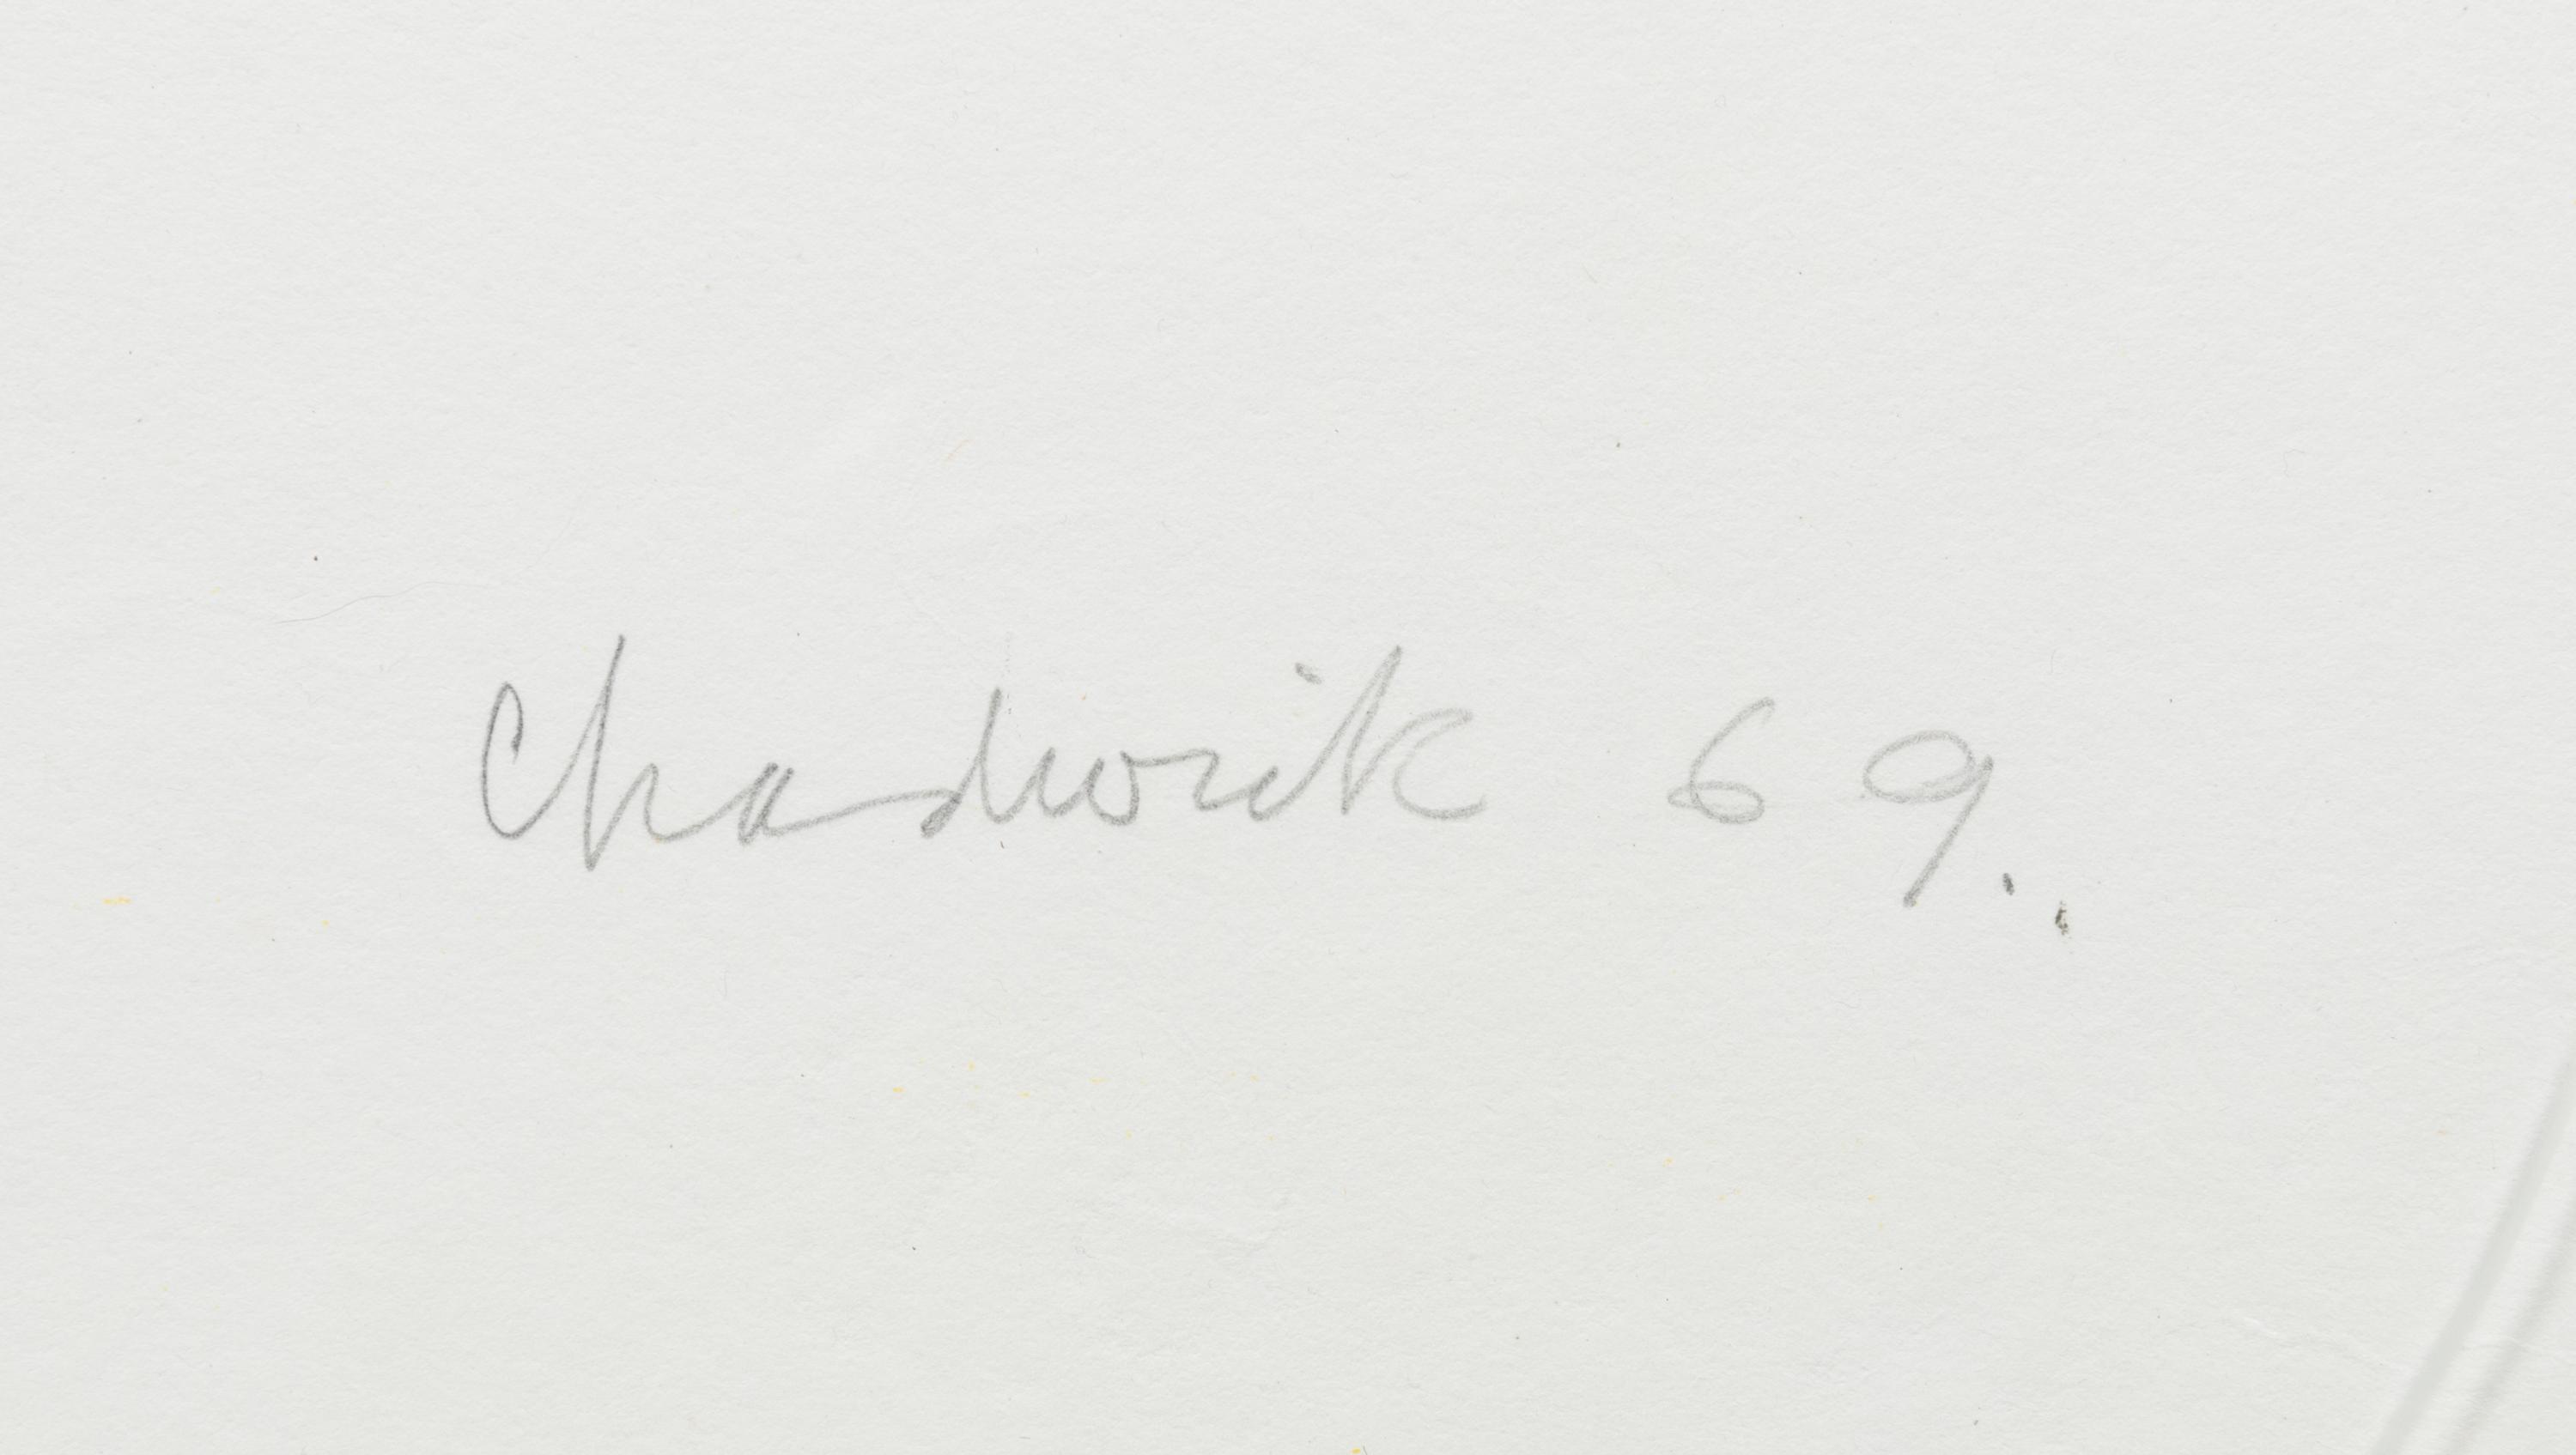 Chadwick 69.